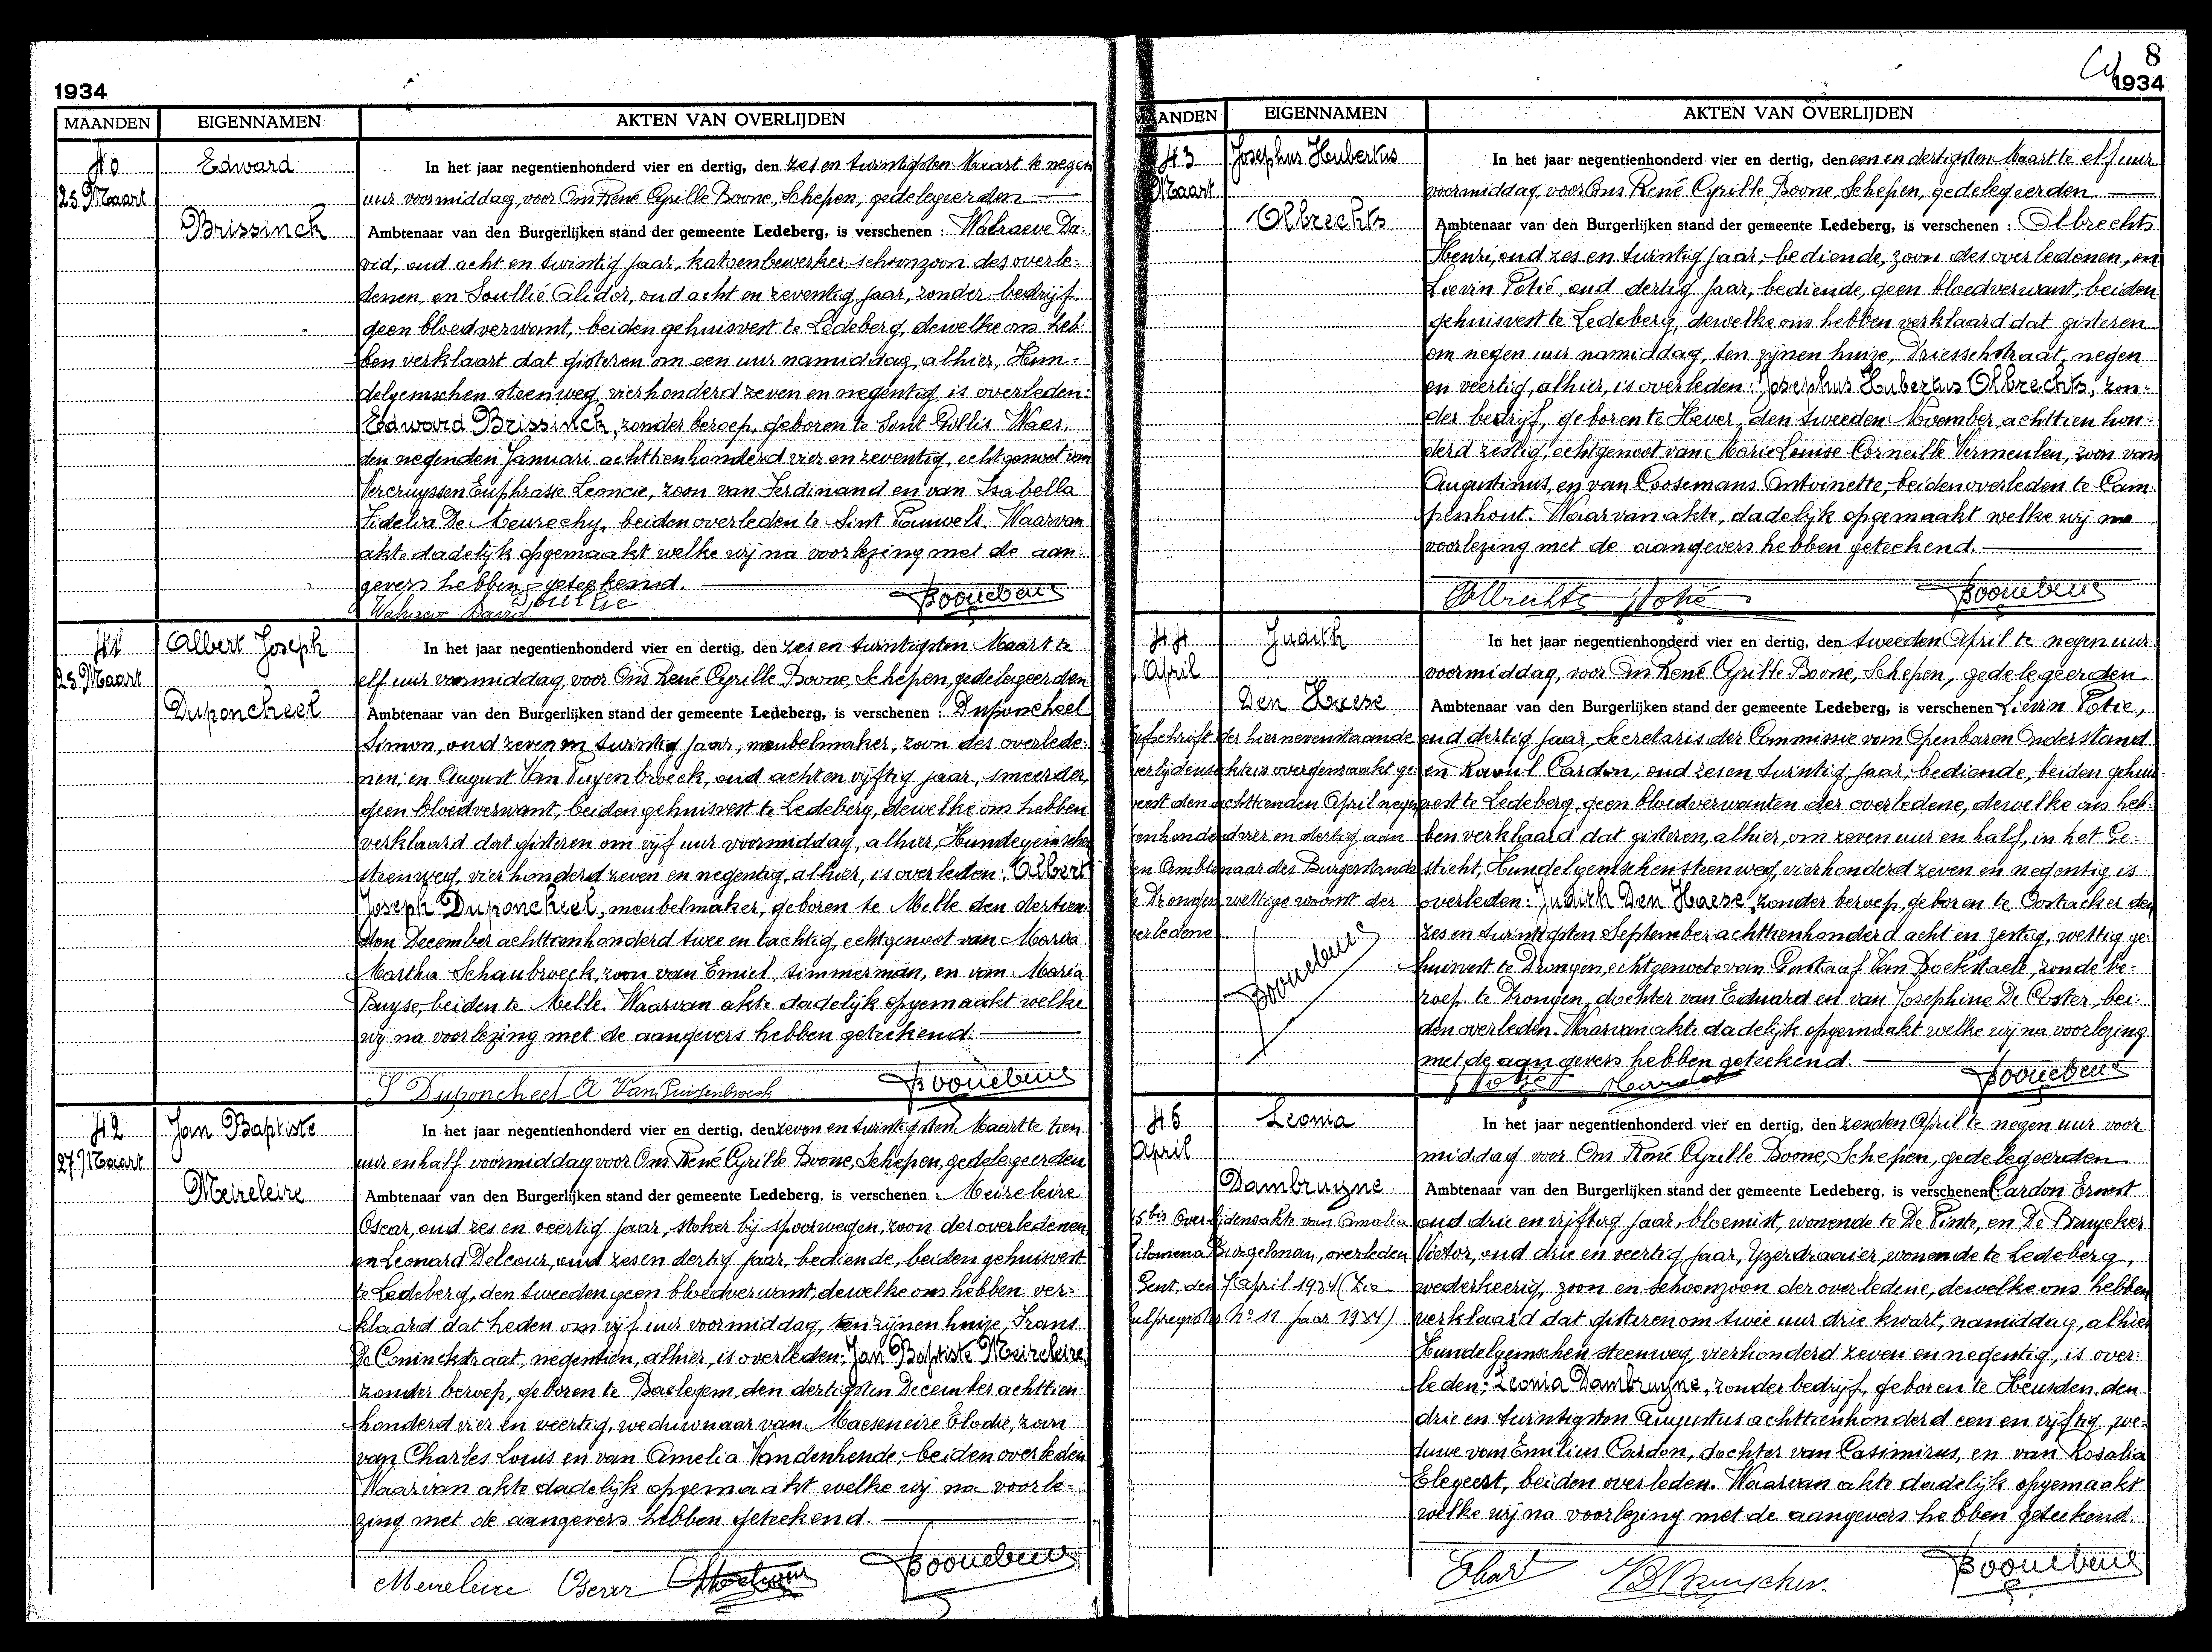 1934
MAANDEN EIGENNAMEN AKTEN VAN OVERLIJDEN
40
25 Maart
Edward
Brissinck
In het jaar negentienhonderd vier en dertig, den zes en twintigsten Maart te negen
uur voormiddag, voor Ons René Cyrille Boone, Schepen, gedelegeerden
Ambtenaar van den Burgerlijken stand der gemeente Ledeberg, is verschenen : Walraeve Da-
vid, oud acht en twintig jaar, katoenbewerker schoonzoon des overle-
denen, en Soullié Alidor, oud acht en zeventig jaar, zonder bedrijf
geen bloedverwant, beiden gehuisvest te Ledeberg, dewelke ons heb-
ben verklaart dat gisteren om een uur namiddag, alhier, Hun-
delgemschen steenweg, vierhonderd zeven en negentig, is overleden:
Edward Brissinck, zonder beroep, geboren te Sint Gillis Waes,
den negenden Januari achttienhonderd vier en zeventig, echtgenoot van
Vercruyssen Euphrasie Leoncie, zoon van Ferdinand en van Isabella
Fidelia De, beiden overleden te Sint Pauwels. Waarvan
akte dadelijk opgemaakt welke wij na voorlezing met de aan-
gevers hebben geteekend.
Walraeve David Soullié Boone
41
25 Maart
Albert Joseph
Duponcheel
In het jaar negentienhonderd vier en dertig, den zes en twintigsten Maart te
elf uur voormiddag, voor Ons René Cyrille Boone, Schepen, gedelegeerden
Ambtenaar van den Burgerlijken stand der gemeente Ledeberg, is verschenen : Duponcheel
Simon, oud zeven en twintig jaar, meubelmaker, zoon des overlede-
nen; en August Van Puyenbroeck, oud acht en vijftig jaar, smeerder,
geen bloedverwant, beiden gehuisvest te Ledeberg, dewelke ons hebben
verklaard dat gisteren om vijf uur voormiddag, alhier, Hundegemschen
steenweg, vierhonderd zeven en negentig, alhier, is overleden: Albert
Joseph Duponcheel, meubelmaker, geboren te Melle den dertien-
den December achttienhonderd twee en tachtig, echtgenoot van Maria
Martha Schaubroeck, zoon van Emiel, timmerman, en van Maria
Buyse, beiden te Melle. Waarvan akte dadelijk opgemaakt welke
wij na voorlezing met de aangevers hebben geteekend.
S Duponcheel A Van Puijenbroeck Boone
42
27 Maart
Jan Baptiste
Meireleire
In het jaar negentienhonderd vier en dertig, den zeven en twintigsten Maart te tien
uur en half voormiddag voor Ons René Cyrille Boone, Schepen, gedelegeerden
Ambtenaar van den Burgerlijken stand der gemeente Ledeberg, is verschenen : Meireleire
Oscar, oud zes en veertig jaar, stoker bij spoorwegen, zoon des overledenen
en Leonard Delcour, oud zes en dertig jaar, bediende, beiden gehuisvest
te Ledeberg, den tweeden geen bloedverwant, dewelke ons hebben ver-
klaard dat heden om vijf uur voormiddag, ten zijnen huize, Frans
De Coninckstraat, negentien, alhier, is overleden: Jan Baptiste Meireleire,
zonder beroep, geboren te Baelegem, den dertigsten December achttien-
honderd vier en veertig, weduwnaar van Maeseneire Elodie, zoon
van Charles Louis en van Amelia Vandenhende, beiden overleden
Waarvan akte dadelijk opgemaakt welke wij na voorle-
zing met de aangevers hebben geteekend.
Meireleire Oscar Boone
8
1934
MAANDEN EIGENNAMEN AKTEN VAN OVERLIJDEN
43
Maart
Josephus Hubertus
Olbrechts
In het jaar negentienhonderd vier en dertig, den een en dertigsten Maart te elf uur
voormiddag, voor Ons René Cyrille Boone, Schepen, gedelegeerden
Ambtenaar van den Burgerlijken stand der gemeente Ledeberg, is verschenen : Olbrechts
Henri, oud zes en twintig jaar, bediende, zoon des overledenen, en
Lievin Potié, oud dertig jaar, bediende, geen bloedverwant, beiden
gehuisvest te Ledeberg, dewelke ons hebben verklaard dat gisteren
om negen uur namiddag, ten zijnen huize, Driesschstraat, negen
en veertig, alhier, is overleden: Josephus Hubertus Olbrechts, zon-
der bedrijf, geboren te Hever, den tweeden November, achttien hon-
derd zestig, echtgenoot van Marie Louise Corneille Vermeulen, zoon van
Augustinus, en van Coosemans Antoinette, beiden overleden te Cam-
penhout. Waarvan akte, dadelijk opgemaakt welke wij na
voorlezing met de aangevers hebben geteekend.
Olbrechts Potié Boone
44
April
Judith
Den Haese
In het jaar negentienhonderd vier en dertig, den tweeden April te negen uur
voormiddag, voor Ons René Cyrille Boone, Schepen, gedelegeerden
Ambtenaar van den Burgerlijken stand der gemeente Ledeberg, is verschenen Lievin Potié,
oud dertig jaar, Secretaris der Commissie van Openbaren Onderstand
en Raoul Cardon, oud zes en twintig jaar, bediende, beiden gehuis-
vest te Ledeberg, geen bloedverwanten der overledene, dewelke ons heb-
ben verklaard dat gisteren, alhier, om zeven uur en half, in het Ge-
sticht, Hundelgemschensteenweg, vierhonderd zeven en negentig is
overleden: Judith Den Haese, zonder beroep, geboren te Oostacker den
zes en twintigsten September achttienhonderd acht en zestig, wettig ge-
huisvest te Drongen, echtgenoote van Gustaaf Van Dockstaele, zonde be-
roep te Drongen, dochter van Eduard en van Josephine De Coster, bei-
den overleden. Waarvan akte dadelijk opgemaakt welke wij na voorlezing
met de aangevers hebben geteekend.
Potié Cardon Boone
Afschrift der hiernevenstaande
verlijdensakte is overgemaakt ge-
weest den achttienden April negen-
tienhonderd vier en dertig aan
den Ambtenaar des Burgerstands
te Drongen wettige woonst der
verledene
Boone
45
April
Leonia
Dambruyne
In het jaar negentienhonderd vier en dertig, den zesden April te negen uur voor
middag voor Ons René Cyrille Boone, Schepen, gedelegeerden
Ambtenaar van den Burgerlijken stand der gemeente Ledeberg, is verschenen : Cardon Ernest
oud drie en vijftig jaar, bloemist, wonende te De Pinte, en De Bruycker
Victor, oud drie en veertig jaar, Yzerdraaier, wonende te Ledeberg,
wederkeerig, zoon en schoonzoon der overledene, dewelke ons hebben
verklaard dat gisteren om twee uur drie kwart, namiddag, alhier
Hundelgemschen steenweg, vierhonderd zeven en negentig, is over-
leden: Leonia Dambruyne, zonder bedrijf, geboren te Heusden, den
drie en twintigsten Augustus achttienhonderd een en vijftig, we-
duwe van Emilius Cardon, dochter van Casimirus, en van Rosalia
Elegeert, beiden overleden. Waarvan akte dadelijk opgemaakt
welke wij na voorlezing met de aangevers hebben geteekend.
45 bis Overlijdensakte van Amelia
Filomena Burgelman, overleden
Gent, den 7 April 1934 (Zie
hulpregister No 11 jaar 1934)
VDBruycker Boone